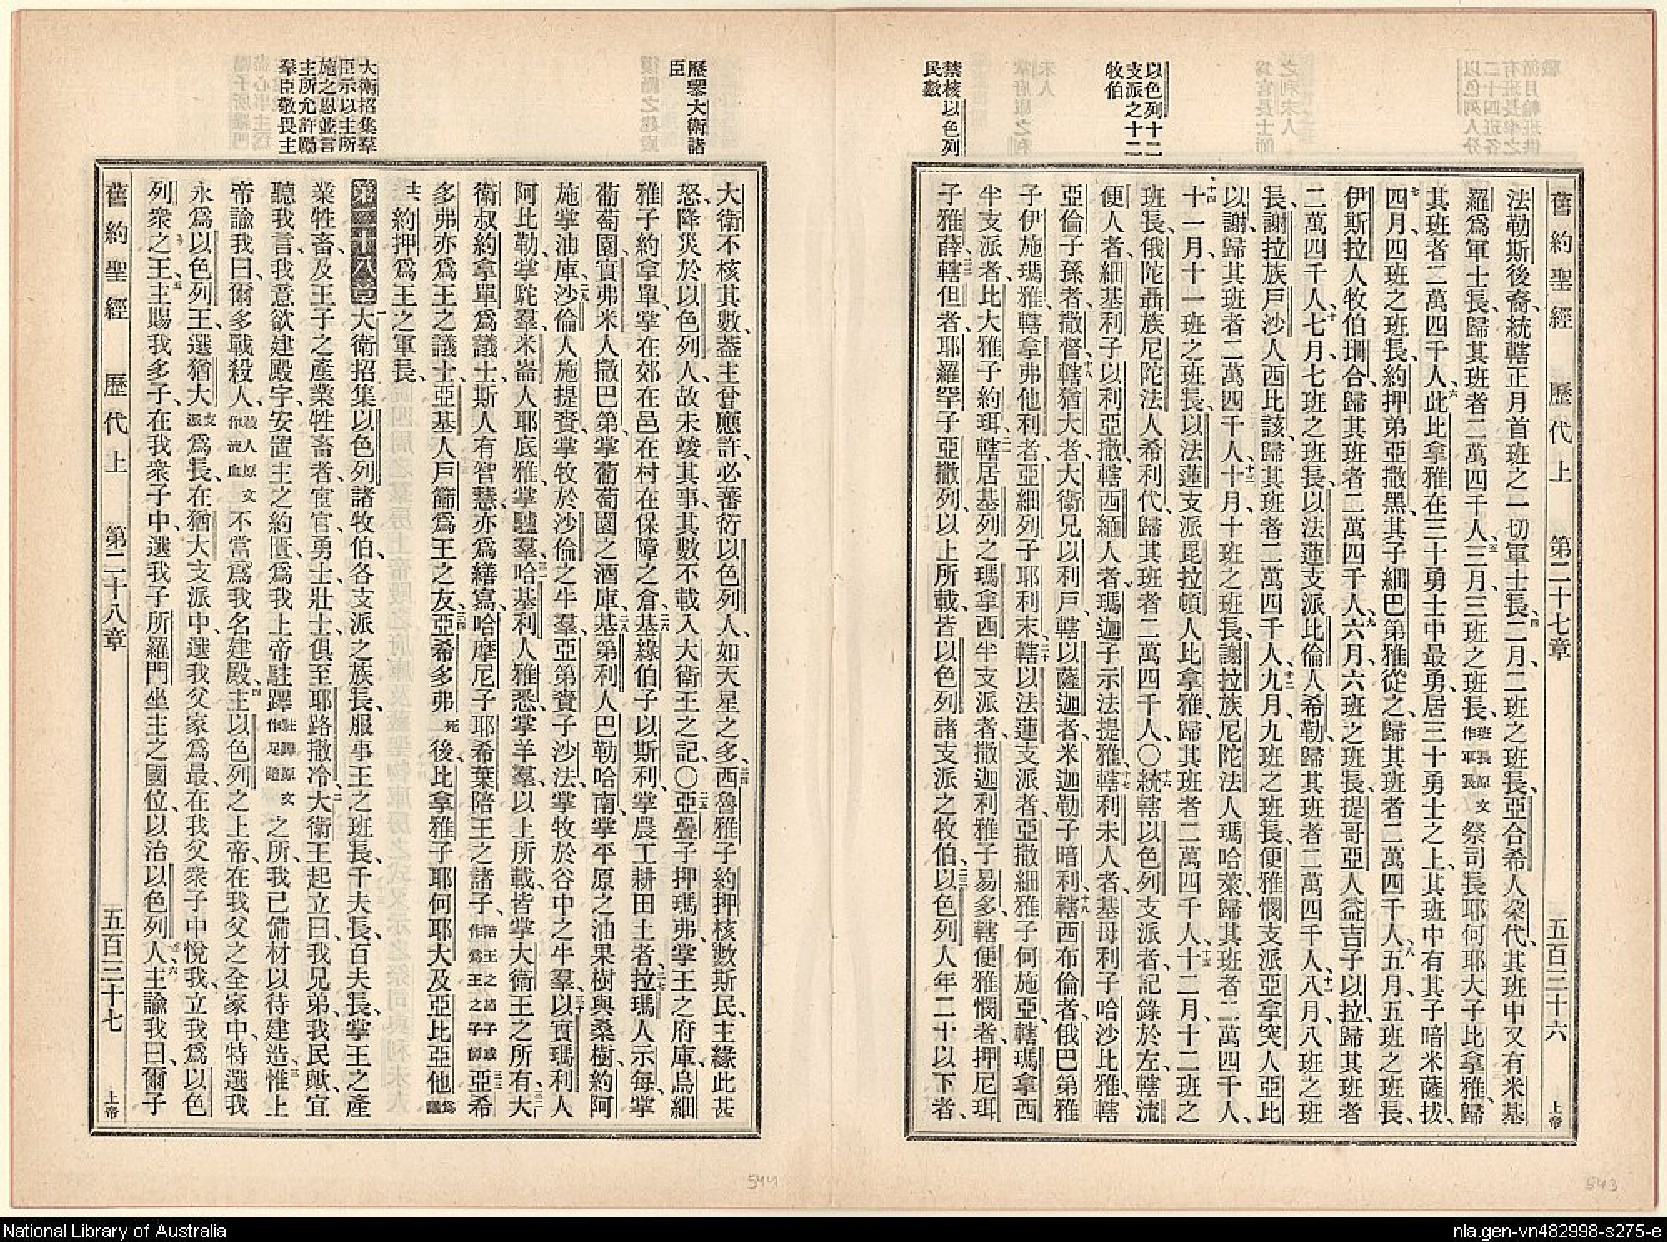 舊約聖經 歷代上 第二十七章 五百三十六 上帝
以色列十二
支派之十二
牧伯
禁核以色列
民數
法勒斯後裔、統轄正月首班之一切軍士長、二月二班之班長、亞合希人朶代、其班中又有米基
羅爲軍士長、歸其班者二萬四千人、三月三班之班長、班長原文作軍長祭司長耶何耶大子比拿雅、歸
其班者二萬四千人、此比拿雅在三十勇士中最勇、居三十勇士之上、其班中有其子暗米薩拔、
四月四班之班長、約押弟亞撒黑、其子細巴第雅從之、歸其班者二萬四千人、五月五班之班長、
伊斯拉人牧伯珊合、歸其班者二萬四千人、六月六班之班長、提哥亞人益吉子以拉、歸其班者
二萬四千人、七月七班之班長、以法蓮支派比倫人希勒、歸其班者二萬四千人、八月八班之班
長、謝拉族戶沙人西比該、歸其班者二萬四千人、九月九班之班長、便雅憫支派亞拿突人亞比
以謝、歸其班者二萬四千人、十月十班之班長、謝拉族尼陀法人瑪哈萊、歸其班者二萬四千人、
十一月十一班之班長、以法蓮支派毘拉頓人比拿雅、歸其班者二萬四千人、十二月十二班之
班長、俄陀聶族尼陀法人希利代、歸其班者二萬四千人、○統轄以色列支派者、記錄於左、轄流
便人者、細基利子以利亞撒、轄西緬人者、瑪迦子示法提雅、轄利未人者、基母利子哈沙比雅、轄
亞倫子孫者、撒督、轄猶大者、大衛兄以利戶、轄以薩迦者、米迦勒子暗利、轄西布倫者、俄巴第雅
子伊施瑪雅、轄拿弗他利者、亞細列子耶利末、轄以法蓮支派者、亞撒細雅子何施亞、轄瑪拿西
半支派者、比大雅子約珥、轄居基列之瑪拿西半支派者、撒迦利雅子易多、轄便雅憫者、押尼珥
子雅薛、轄但者、耶羅罕子亞撒列、以上所載、皆以色列諸支派之牧伯、以色列人年二十以下者、
歷舉大衛諸
臣
大衛招集羣
臣示以主所
施之恩並言
主所允許勖
羣臣敬畏主
大衛不核其數、蓋主曾應許、必蕃衍以色列人、如天星之多、西魯雅子約押核數斯民、主緣此甚
怒、降災於以色列人、故未竣其事、其數不載入大衛王之記、○亞疊子押瑪弗、掌王之府庫、烏細
雅子約拿單、掌在郊在邑在村在保障之倉、基綠伯子以斯利、掌農工耕田土者、拉瑪人示每、掌
葡萄園、實弗米人撒巴第、掌葡萄園之酒庫、基第利人巴勒哈南、掌平原之油果樹與桑樹、約阿
施掌油庫、沙倫人施提賚、掌牧於沙倫之牛羣、亞第賚子沙法、掌牧於谷中之牛羣、以實瑪利人
阿比勒、掌駝羣、米崙人耶底雅、掌驢羣、哈基利人雅悉、掌羊羣、以上所載、皆掌大衛王之所有、大
衛叔約拿單爲議士、斯人有智慧、亦爲繕寫、哈摩尼子耶希葉陪王之諸子、陪王之諸子或作爲王之子師亞希
多弗亦爲王之議士、亞基人戶篩爲王之友、亞希多弗死後、比拿雅子耶何耶大及亞比亞他爲議士
約押爲王之軍長、
第二十八章 大衛招集以色列諸牧伯、各支派之族長、服事王之班長、千夫長、百夫長、掌王之產
業牲畜、及王子之產業牲畜者、宦官、勇士、壯士、俱至耶路撒冷、大衛王起立曰、我兄弟、我民歟、宜
聽我言、我意欲建殿宇、安置主之約匱、爲我上帝駐蹕駐蹕原文作足凳之所、我已備材以待建造、惟上
帝諭我曰、爾多戰殺人、殺人原文作流血不當爲我名建殿、主以色列之上帝、在我父之全家中、特選我
永爲以色列王、選猶大支派爲長、在猶大支派中、選我父家爲最、在我父衆子中悅我、立我爲以色
列衆之王、主賜我多子、在我衆子中、選我子所羅門坐主之國位、以治以色列人、主諭我曰、爾子
舊約聖經 歷代上 第二十八章 五百三十七 上帝
543
544
National Library of Australia
nla.gen-vn482998-s275-e